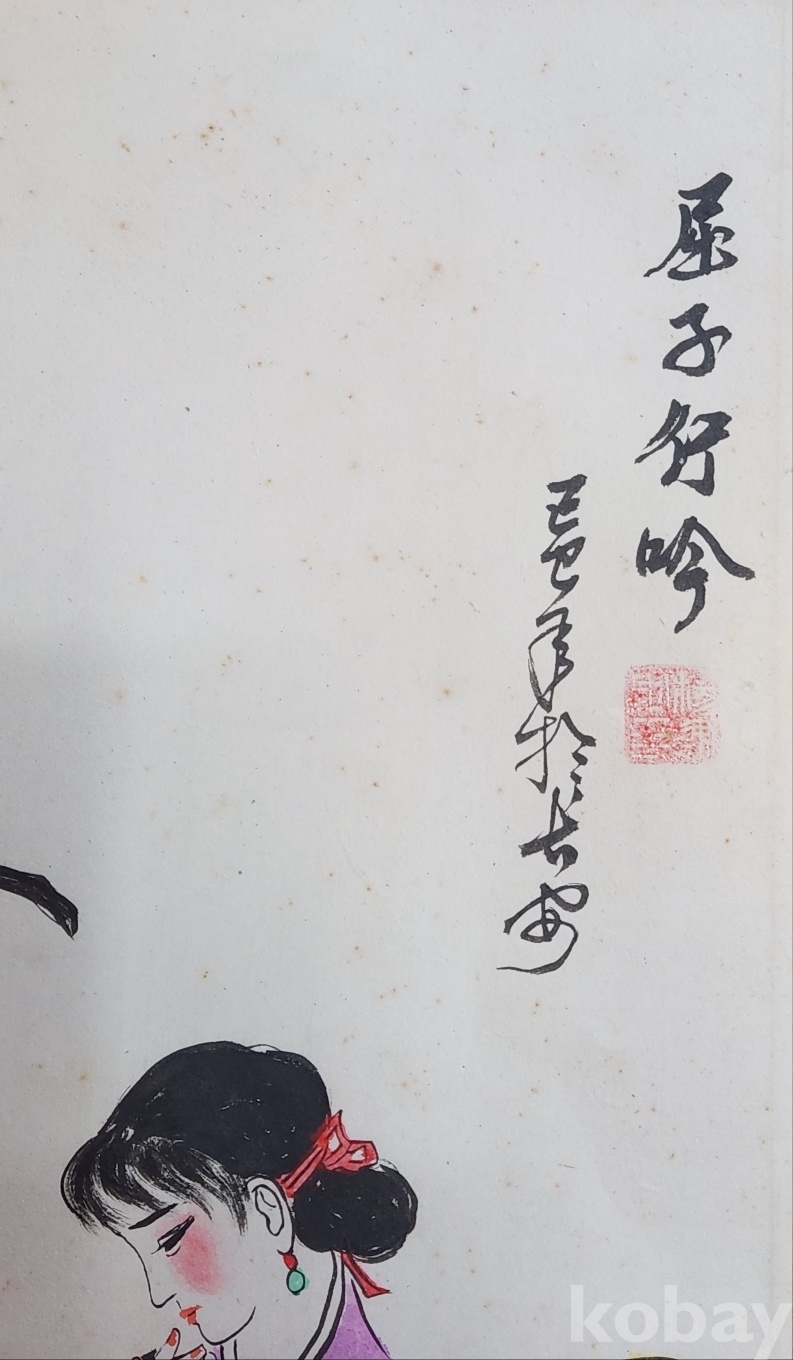 屈子行吟
己巳年於长安
kobay